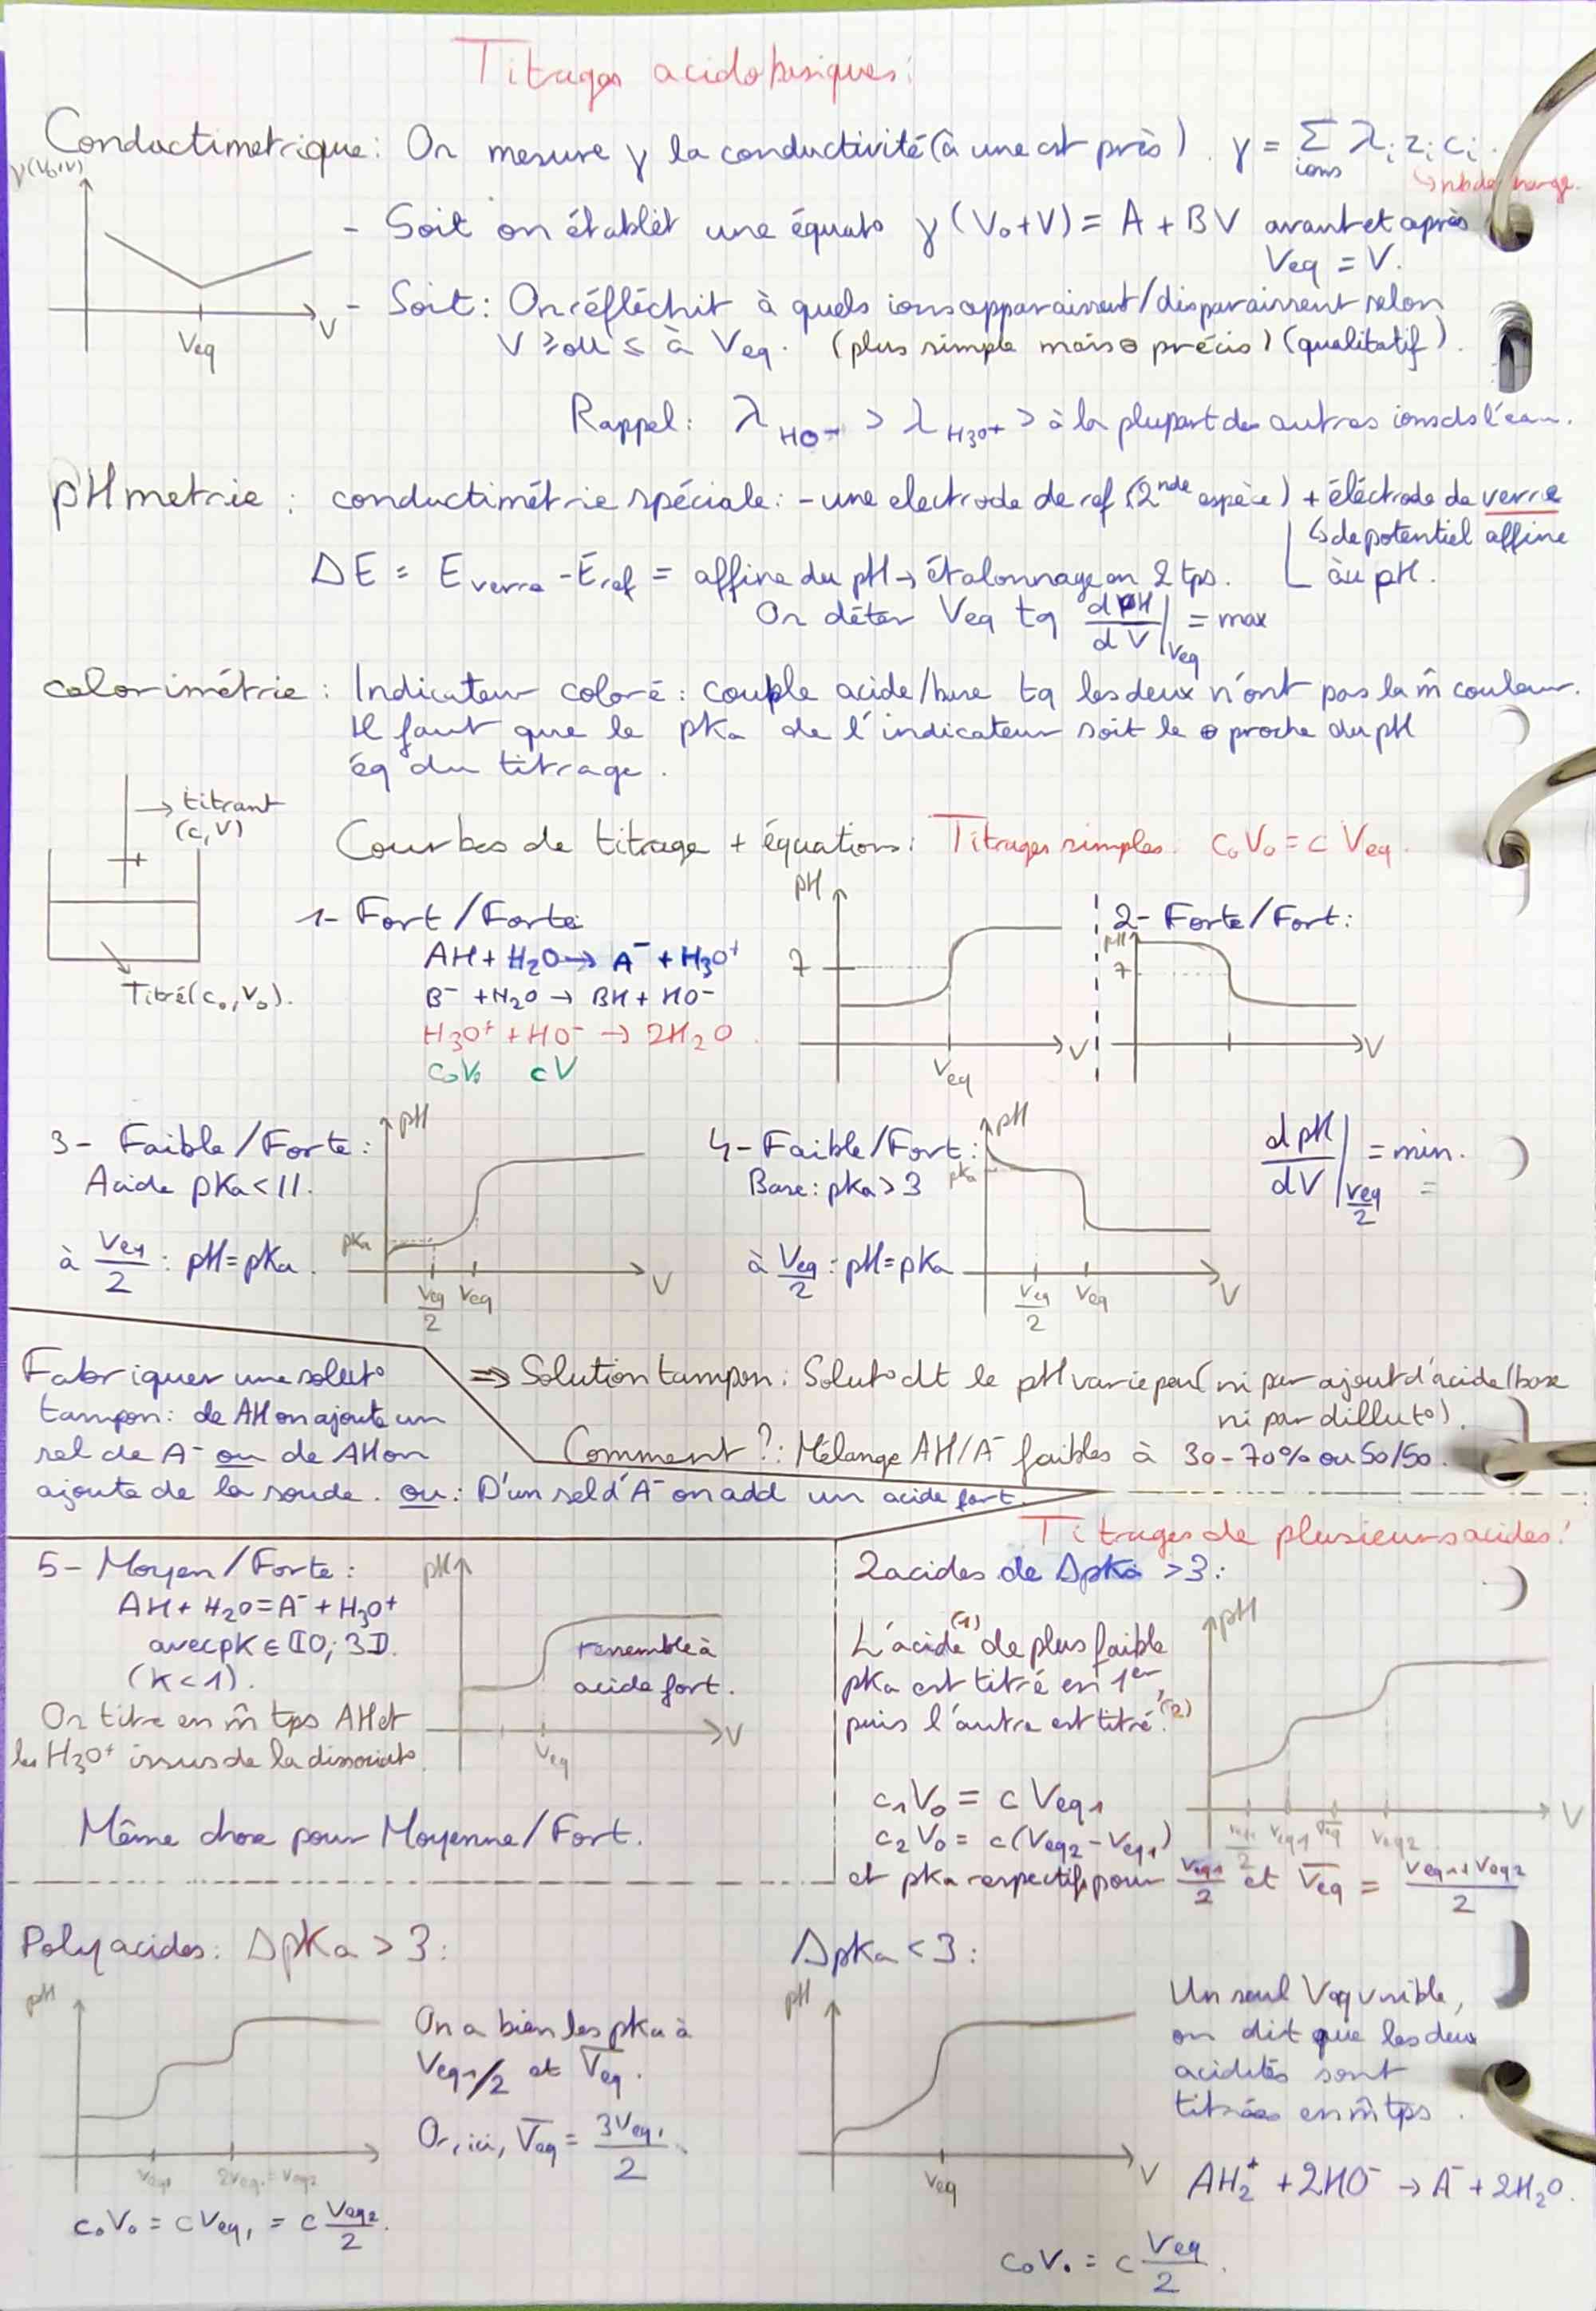 Titrages acidobasiques:
Conductimetrique: On mesure γ la conductivité (à une cst près). γ = Σ λi zi ci.
ions
↳ nb de charge.
γ(V0+V)
- Soit on établit une équato γ(V0+V) = A + BV avant et après
Veq = V.
- Soit: On réfléchit à quels ions apparaissent/disparaissent selon
V ≥ ou ≤ à Veq. (plus simple mais ⊖ précis) (qualitatif).
V
Veq
Rappel: λHO- > λH3O+ > à la plupart des autres ions ds l'eau.
pHmetrie: conductimétrie spéciale: - une electrode de ref (2nde espèce) + éléctrode de verre
↳ de potentiel affine
au pH.
ΔE = Everre - Eref = affine du pH → étalonnage en 2 tps.
On déter Veq tq dpH/dV |Veq = max
colorimétrie: Indicateur coloré: couple acide/base tq les deux n'ont pas la m̂ couleur.
Il faut que le pKa de l'indicateur soit le ⊕ proche du pH
éq du titrage.
→ titrant
(c,V)
Titré (c0, V0).
Courbes de titrage + équations: Titrages simples. c0V0 = c Veq.
1- Fort/Forte:
AH + H2O → A- + H3O+
B- + H2O → BH + HO-
H3O+ + HO- → 2H2O.
c0V0 cV
pH
7
V
Veq
2- Forte/Fort:
pH
7
V
3- Faible/Forte:
Acide pKa < 11.
à Veq/2 : pH = pKa.
pH
pKa
Veq/2 Veq
V
4- Faible/Fort:
Base: pka > 3
à Veq/2 : pH = pKa
pH
pKa
Veq/2 Veq
V
dpH/dV |Veq/2 = min.
=
Fabriquer une soluto
tampon: de AH on ajoute un
sel de A- ou de AH on
ajoute de la soude. ou: D'un sel d'A- on add un acide fort.
⇒ Solution tampon: Soluto dt le pH varie peu (ni par ajout d'acide/base
ni par diluto).
Comment ?: Mélange AH/A- faibles à 30-70% ou 50/50.
5- Moyen/Forte:
AH + H2O = A- + H3O+
avec pK ∈ ⟦0; 3⟧.
(K<1).
On titre en m̂ tps AH et
les H3O+ issus de la dissociato.
Même chose pour Moyenne/Fort.
pH
ressemble à
acide fort.
V
Veq
Titrages de plusieurs acides:
2 acides de ΔpKa > 3:
L'acide (1) de plus faible
pKa est titré en 1er,
puis l'autre est titré. (2)
c1V0 = c Veq1
c2V0 = c(Veq2 - Veq1)
et pKa respectifs pour Veq1/2 et V̅eq = Veq1+Veq2/2
pH
Veq1/2 Veq1 V̅eq Veq2
V
Polyacides: ΔpKa > 3:
pH
Veq1 2Veq1 = Veq2
c0V0 = cVeq1 = c Veq2/2.
On a bien les pKa à
Veq1/2 et V̅eq.
Or, ici, V̅eq = 3Veq1/2.
ΔpKa < 3:
pH
Veq
V
Un seul Veq visible,
on dit que les deux
acidités sont
titrées en m̂ tps.
AH2+ + 2HO- → A- + 2H2O.
c0V0 = c Veq/2.